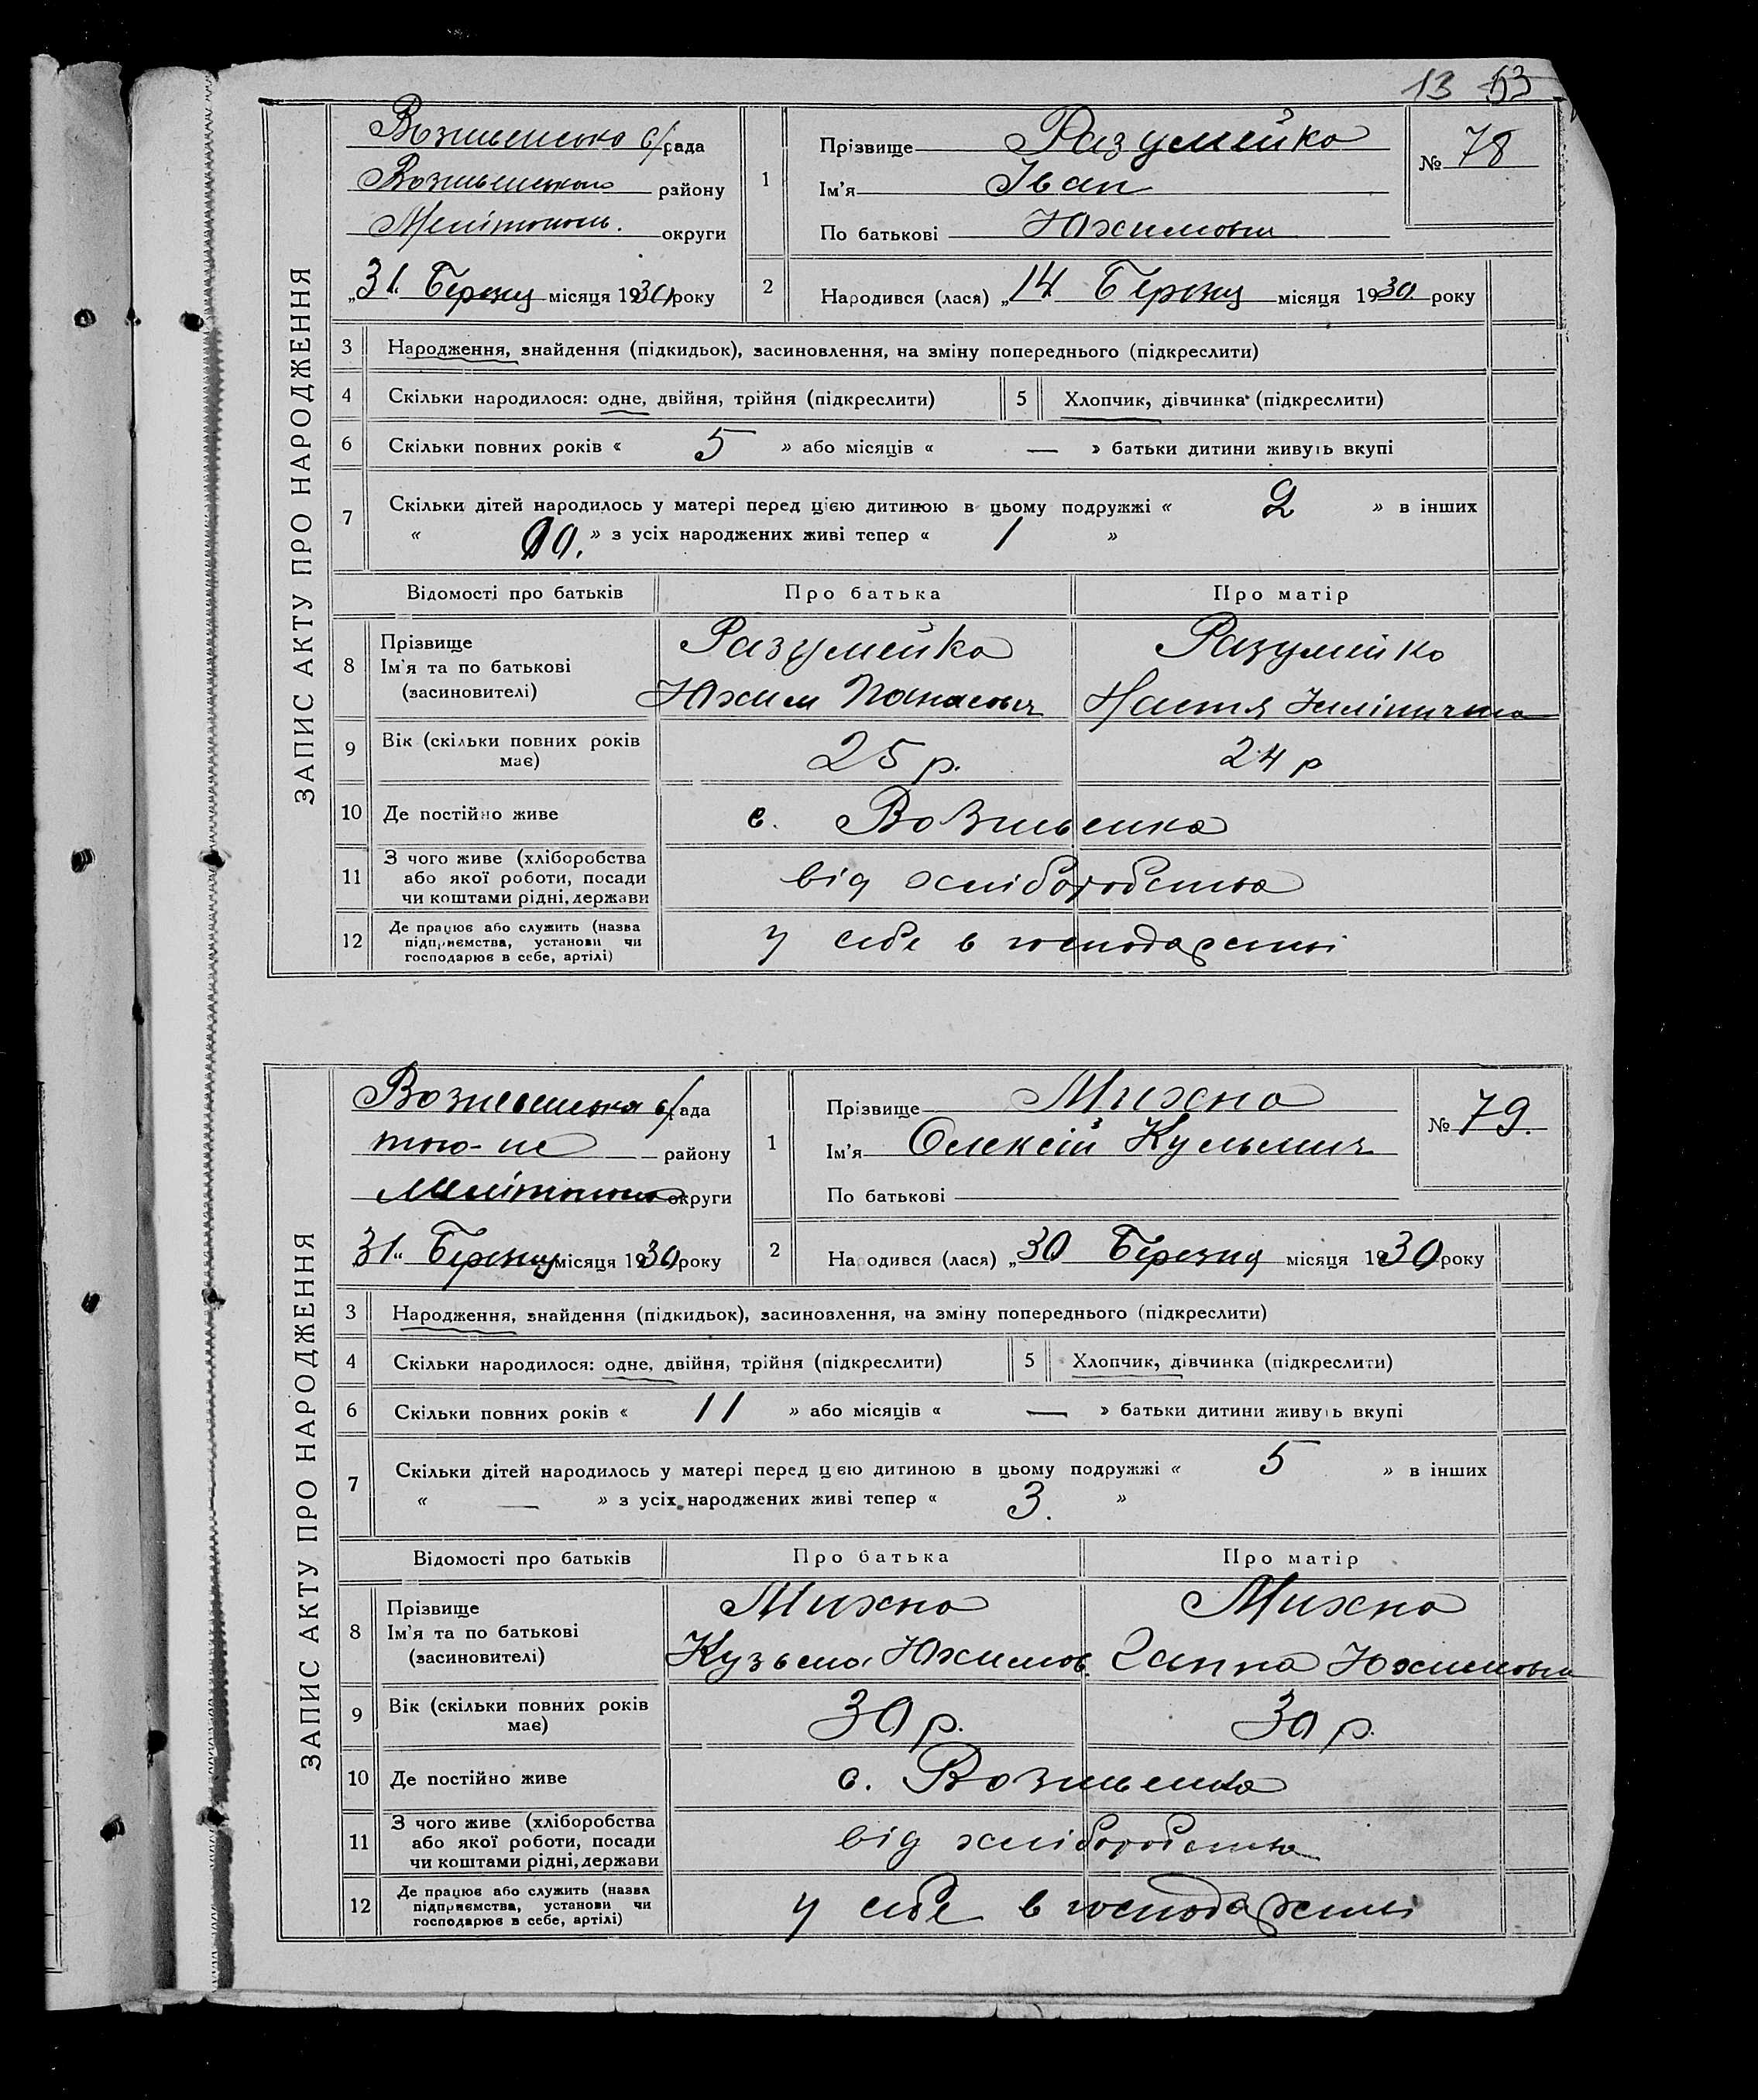 13 53
ЗАПИС АКТУ ПРО НАРОДЖЕННЯ
Вознесенська с/рада
Вознесенського району
Мелітополь. округи
„31" Березня місяця 1930 року
1
Прізвище Разумейко
Ім'я Іван
По батькові Юхимович
№ 78
2
Народився (лася) „14 Березня місяця 1930 року
3 Народження, знайдення (підкидьок), засиновлення, на зміну попереднього (підкреслити)
4 Скільки народилося: одне, двійня, трійня (підкреслити) 5 Хлопчик, дівчинка (підкреслити)
6 Скільки повних років « 5 » або місяців « — » батьки дитини живуть вкупі
7 Скільки дітей народилось у матері перед цією дитиною в цьому подружжі « 2 » в інших
« » з усіх народжених живі тепер « 1 »
Відомості про батьків Про батька Про матір
8 Прізвище
Ім'я та по батькові
(засиновителі)
Разумейко
Юхим Панасович
Разумейко
Настя
9 Вік (скільки повних років
має)
25 р. 24 р
10 Де постійно живе с. Вознесенка
11 З чого живе (хліборобства
або якої роботи, посади
чи коштами рідні, держави
від хліборобства
12 Де працює або служить (назва
підприємства, установи чи
господарює в себе, артілі)
у себе в господарстві
ЗАПИС АКТУ ПРО НАРОДЖЕННЯ
Вознесенська с/рада
того-ж району
Мелітополь округи
31" Березня місяця 1930 року
1
Прізвище Михно
Ім'я Олексій Кузьмич
По батькові
№ 79.
2
Народився (лася) „30 Березня місяця 1930 року
3 Народження, знайдення (підкидьок), засиновлення, на зміну попереднього (підкреслити)
4 Скільки народилося: одне, двійня, трійня (підкреслити) 5 Хлопчик, дівчинка (підкреслити)
6 Скільки повних років « 11 » або місяців « — » батьки дитини живуть вкупі
7 Скільки дітей народилось у матері перед цією дитиною в цьому подружжі « 5 » в інших
« — » з усіх народжених живі тепер « 3. »
Відомості про батьків Про батька Про матір
8 Прізвище
Ім'я та по батькові
(засиновителі)
Михно
Кузьма Юхимов.
Михно
Ганна Юхимовна
9 Вік (скільки повних років
має)
30 р. 30 р.
10 Де постійно живе с. Вознесенка
11 З чого живе (хліборобства
або якої роботи, посади
чи коштами рідні, держави
від хліборобства
12 Де працює або служить (назва
підприємства, установи чи
господарює в себе, артілі)
у себе в господарстві